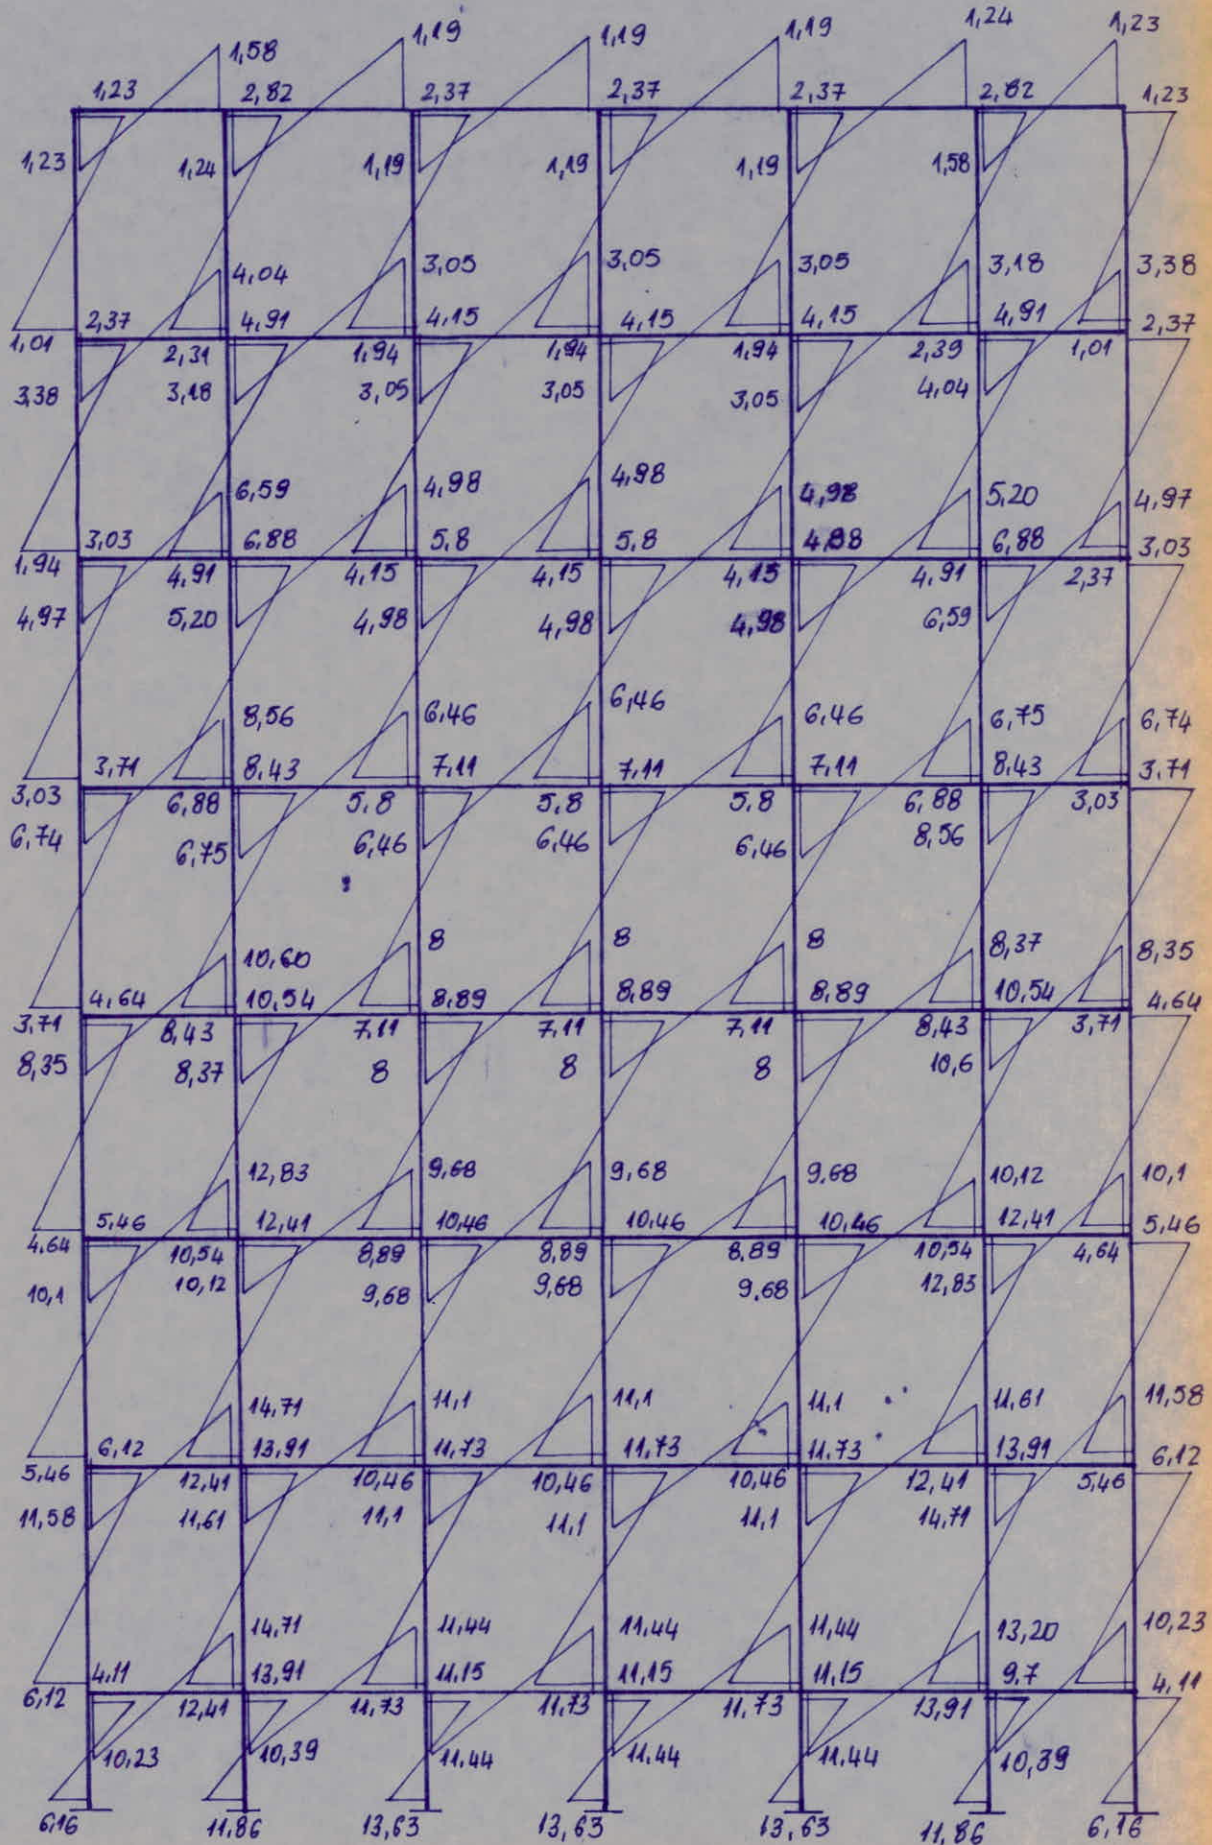 1,58 1,19 1,19 1,19 1,24 1,23
1,23 2,82 2,37 2,37 2,37 2,82 1,23
1,23 1,24 1,19 1,19 1,19 1,58
4,04 3,05 3,05 3,05 3,18 3,38
2,37 4,91 4,15 4,15 4,15 4,91 2,37
1,01 2,31 1,94 1,94 1,94 2,39 1,01
3,38 3,18 3,05 3,05 3,05 4,04
6,59 4,98 4,98 4,98 5,20 4,97
3,03 6,88 5,8 5,8 6,88 3,03
1,94 4,91 4,15 4,15 4,15 4,91 2,37
4,97 5,20 4,98 4,98 4,98 6,59
8,56 6,46 6,46 6,46 6,75 6,74
3,71 8,43 7,11 7,11 7,11 8,43 3,71
3,03 6,88 5,8 5,8 5,8 6,88 3,03
6,74 6,75 6,46 6,46 6,46 8,56
10,60 8 8 8 8,37 8,35
4,64 10,54 8,89 8,89 8,89 10,54 4,64
3,71 8,43 7,11 7,11 7,11 8,43 3,71
8,35 8,37 8 8 8 10,6
12,83 9,68 9,68 9,68 10,12 10,1
5,46 12,41 10,46 10,46 10,46 12,41 5,46
4,64 10,54 8,89 8,89 8,89 10,54 4,64
10,1 10,12 9,68 9,68 9,68 12,83
14,71 11,1 11,1 11,1 11,61 11,58
6,12 13,91 11,73 11,73 11,73 13,91 6,12
5,46 12,41 10,46 10,46 10,46 12,41 5,46
11,58 11,61 11,1 11,1 11,1 14,71
14,71 11,44 11,44 11,44 13,20 10,23
4,11 13,91 11,15 11,15 11,15 9,7 4,11
6,12 12,41 11,73 11,73 11,73 13,91
10,23 10,39 11,44 11,44 11,44 10,39
6,16 11,86 13,63 13,63 13,63 11,86 6,16